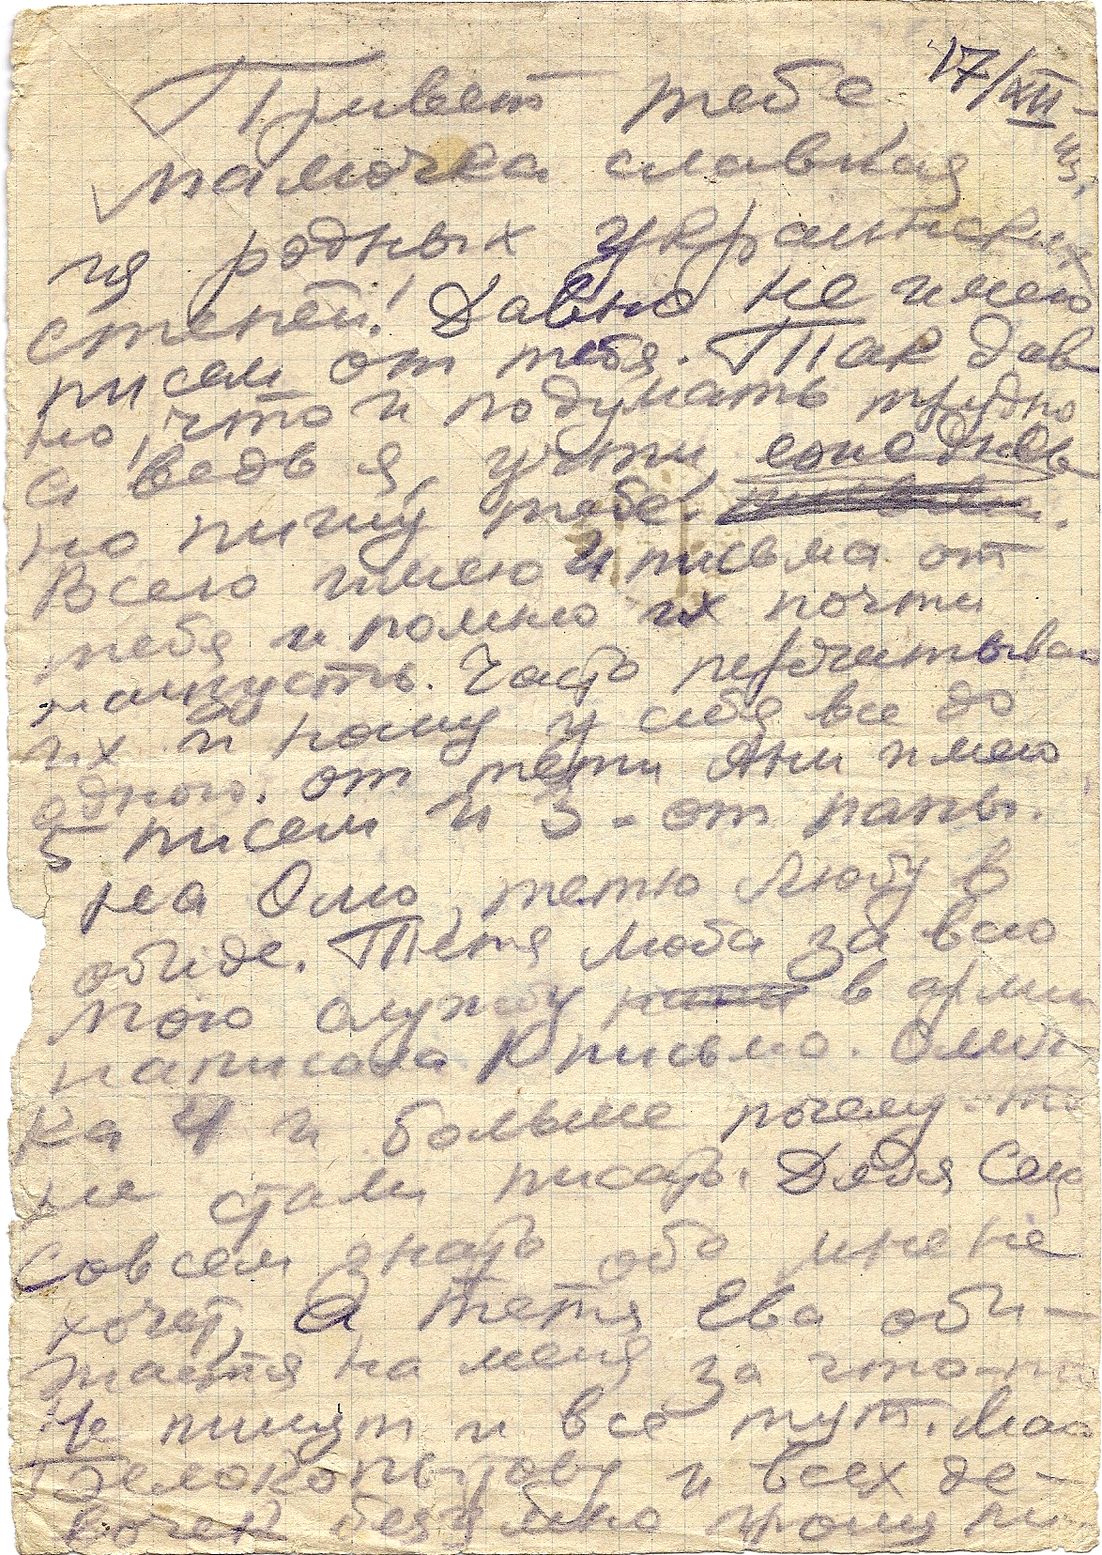 17/XII-43.
Привет тебе,
мамочка славная
из родных украинских
степей! Давно не имею
писем от тебя. Так дав
но, что и подумать трудно
а ведь я, учти, ежеднев
но пишу тебе.
Всего имею 4 письма от
тебя и помню их почти
наизусть. Часто перечитываю
их и ношу у себя все до
одного. от тети Ани имею
5 писем и 3 - от папы.
На Олю, тетю Любу в
обиде. Тетя Люба за всю
мою службу в армии
написала 1 письмо. Олич
ка 4 и больше почему-то
не стали писать. Дядя Сеня
совсем знать обо мне не
хочет, а тетя Ева оби-
жается на меня за что-то
Не пишут и все тут. Маю
Белокопытову и всех де-
вочек безумно прошу пи-